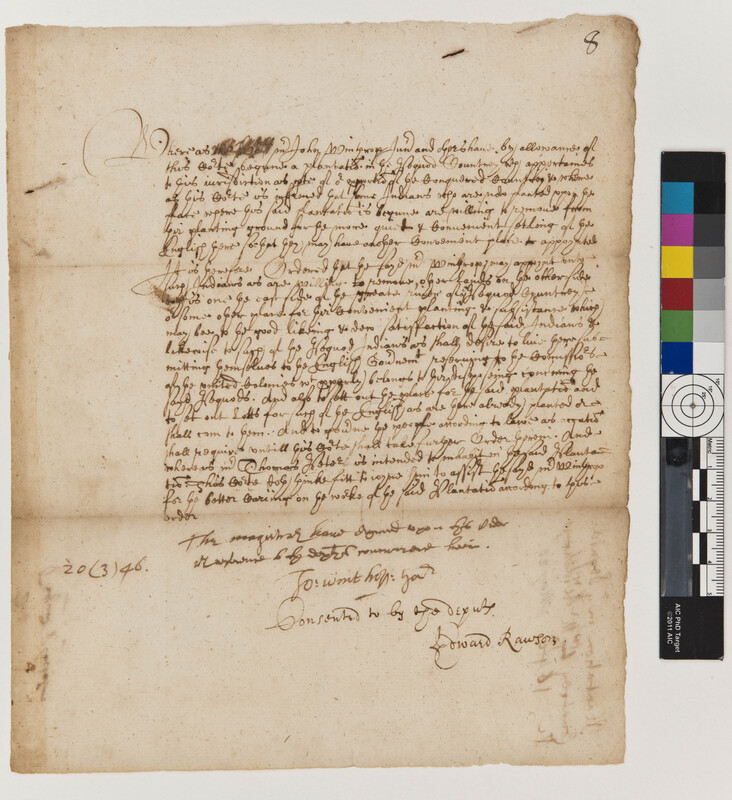 8
Whereas mr John Winthrop Junr and others have by allowance of
this Co'te begunne a plantatio in ye Pequod Country wch appertaines
to this iurisdiction as p'te of or p'portio of ye Conquered Country & whereas
as this Co'te is informed yt some Indians who are now planted upon ye
place where this said plantatio is begunne are willing to remoue from
yeir planting ground for ye more quiet & Convenient setling of ye
English there so that they may have another Convenient place to appointed
It is therefore Ordered yt ye sayd mr Winthrop may appoint unto
such Indians as are willing to remove, other lands on ye other side
that is on ye east side of ye greate river of ye Pequod Country,
or some other place for their Convenient planting & subsistance which
may bee to ye good likeing & satisfaction of ye said Indians &
likewise to such of ye Pequod Indians as shall desire to live there sub-
mitting themselves to ye English Government reserving to ye Comissio'rs
of ye united Colonies wt properly belongs to their disposeing concerning the
said Pequods. And also to sett out ye place for ye said plantatio and
to set out Lotts for such of ye English as are there already planted or
shall com to them. And to governe ye people according to lawe as occatio
shall require untill this Co'te shall take further Order therein. And
whereas mr Thomas Peter is intended to inhabit in ye said Planta-
tio this Co'te doth thinke fitt to ioyne him to assist the sayd mr Winthrop
for ye better Carrying on ye worke of ye said Plantatio according to this
order
The magistrates have agreed upon this order
& desire the concurrence herein.
20 (3) 46.
Jo: Winthrop: Gov'r
Consented to by the deputs.
Edward Rawson
AIC PhD Target
©2011 AIC
Metric
1
2
3
4
5